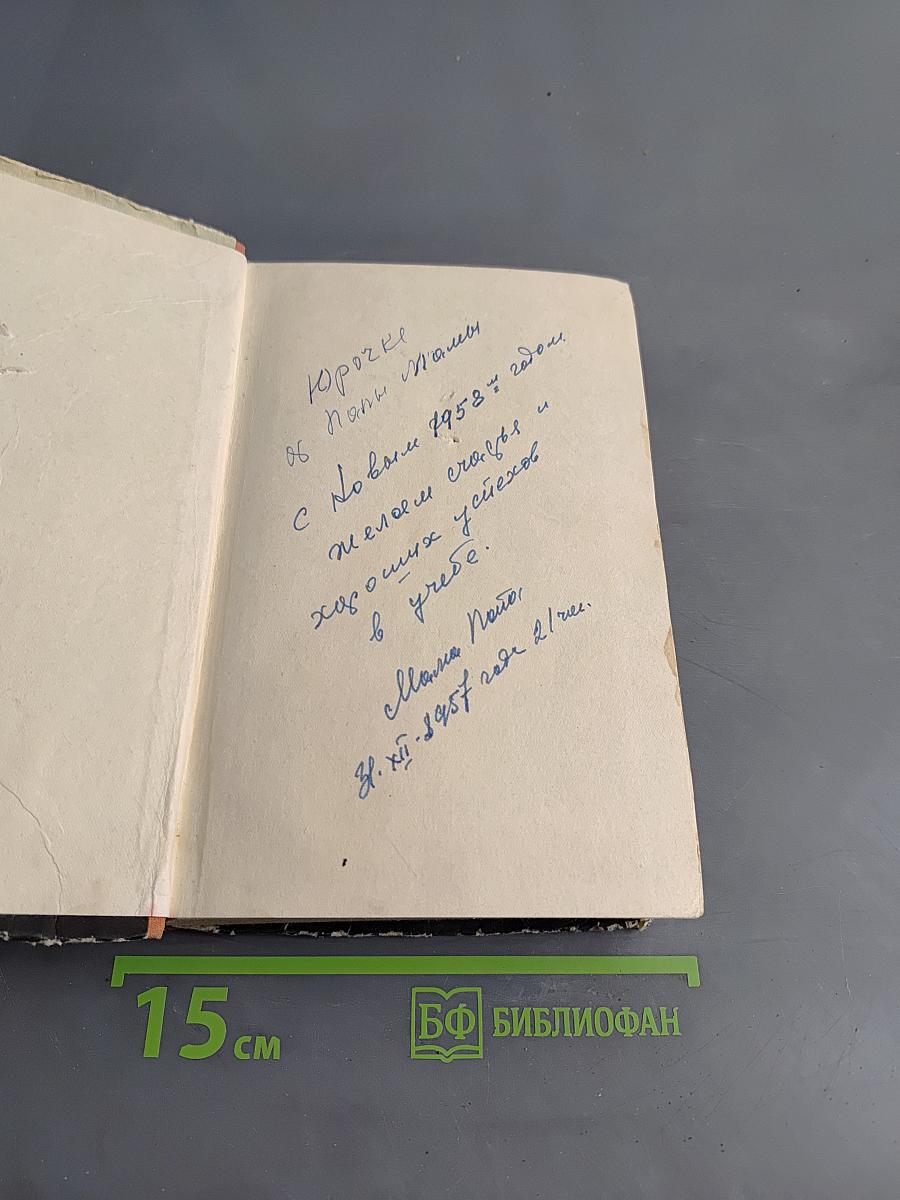 Юрочке
от Папы Мамы
с Новым 1958ᵐ годом.
желаем счастья и
хороших успехов
в учебе.
Мама Папа,
31. XII. 1957 года 21 час.
15 см
БФ БИБЛИОФАН